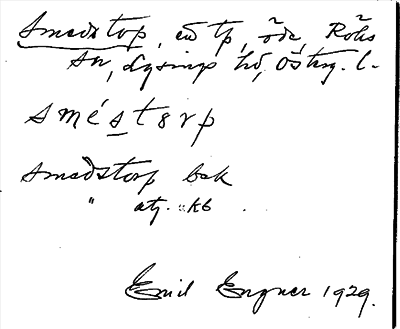 Smedstorp, ed tp, öde, Röks
sn, Lysings hd, Östrg. l.
smés̲terp
smedstorp bek
" atj. KB
Emil Engner 1929.